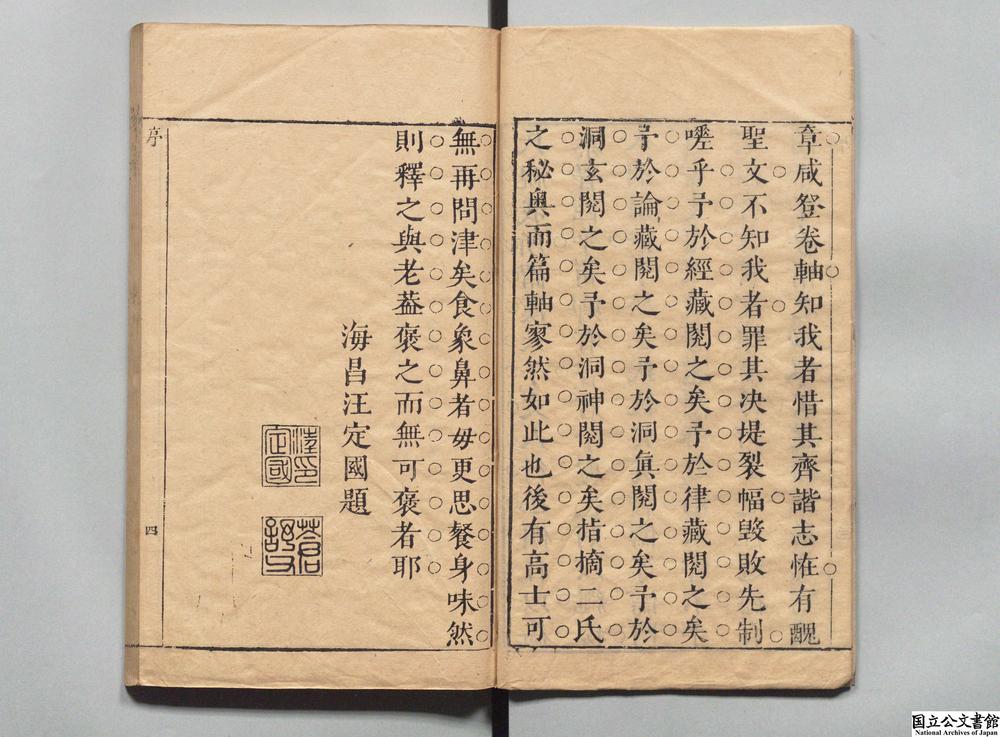 章咸登卷軸知我者惜其齊諧志恠有醜
聖文不知我者罪其决堤裂幅毀敗先制
嗟乎予於經藏閱之矣予於律藏閱之矣
予於論藏閱之矣予於洞眞閱之矣予於
洞玄閱之矣予於洞神閱之矣指摘二氏
之秘奥而篇軸寥然如此也後有高士可
無再問津矣食象鼻者毋更思餐身味然
則釋之與老葢褒之而無可褒者耶
海昌汪定國題
汪印定國
蒼
序
四
国立公文書館
National Archives of Japan